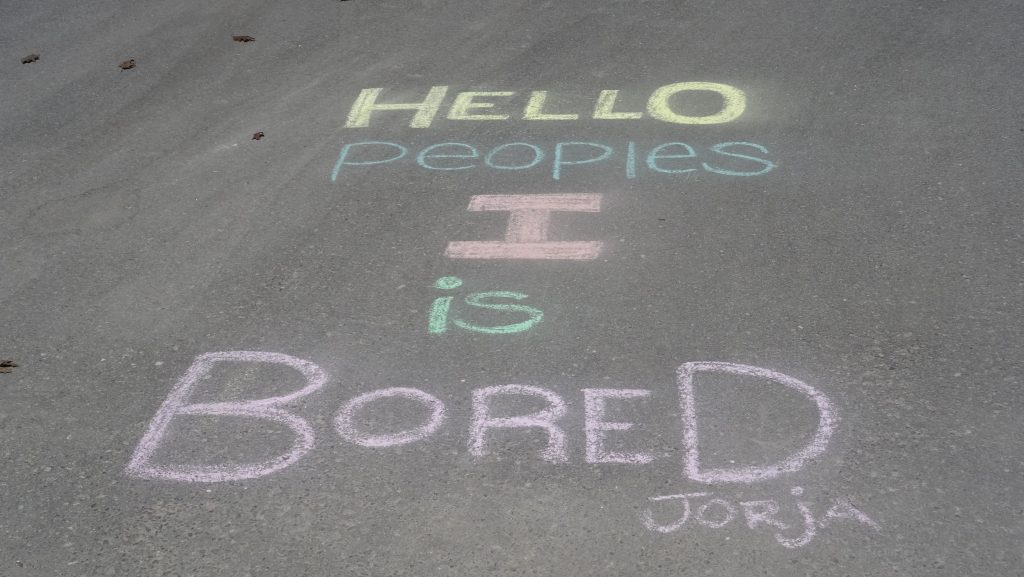 HELLO
peoples
I
is
BORED
Jorja